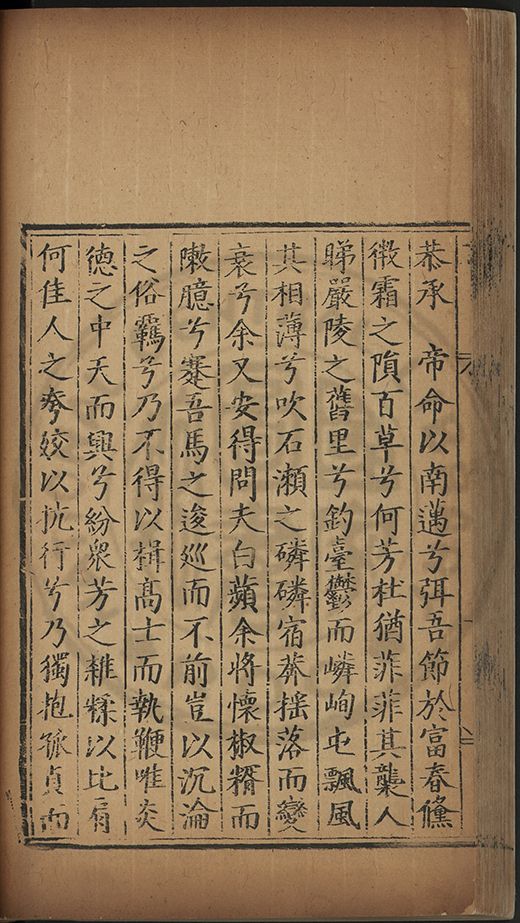 恭承　帝命以南邁兮弭吾節於富春儵
微霜之隕百草兮何芳杜猶菲菲其襲人
睇嚴陵之舊里兮釣臺鬱而嶙峋屯飄風
其相薄兮吹石瀨之磷磷宿莽搖落而變
衰兮余又安得問夫白蘋余將懷椒糈而
陳臆兮蹇吾馬之逡巡而不前豈以沉淪
之俗羈兮乃不得以楫高士而執鞭唯炎
德之中天而興兮紛衆芳之雜糅以比肩
何佳人之夸姣以抗行兮乃獨抱孤貞而